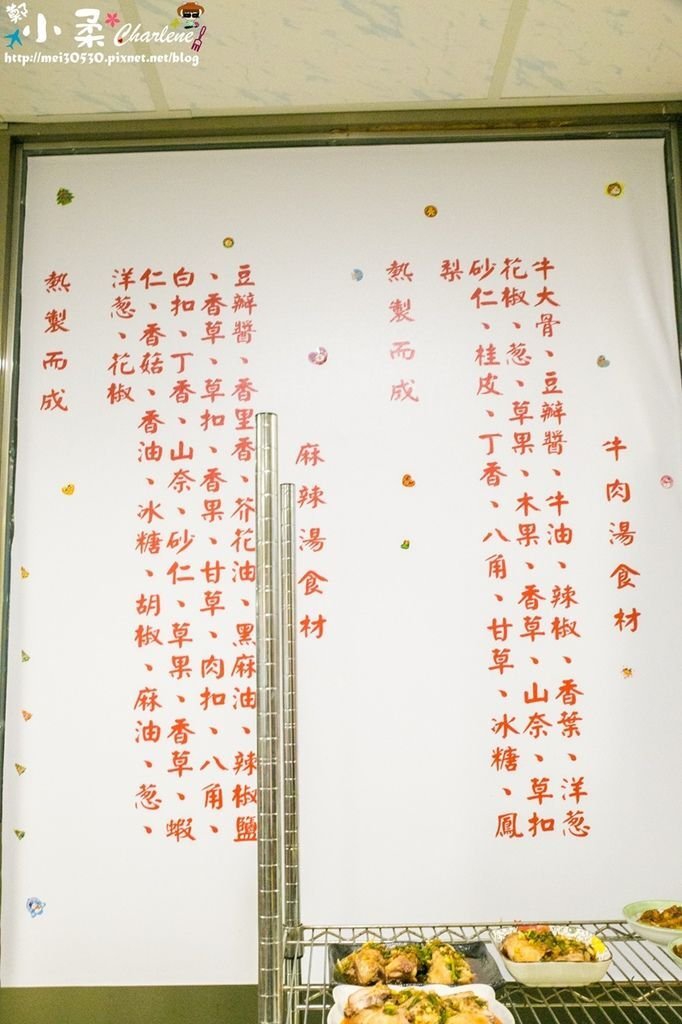 鄭小柔 Charlene
http://mei30530.pixnet.net/blog
牛肉湯食材
牛大骨、豆瓣醬、牛油、辣椒、香葉、洋蔥
花椒、蔥、草果、木果、香草、山奈、草扣
砂仁、桂皮、丁香、八角、甘草、冰糖、鳳
梨
熱製而成
麻辣湯食材
豆瓣醬、香里香、芥花油、黑麻油、辣椒鹽
、香草、草扣、香果、甘草、肉扣、八角、
白扣、丁香、山奈、砂仁、草果、香草、蝦
仁、香菇、香油、冰糖、胡椒、麻油、蔥、
洋蔥、花椒
熱製而成